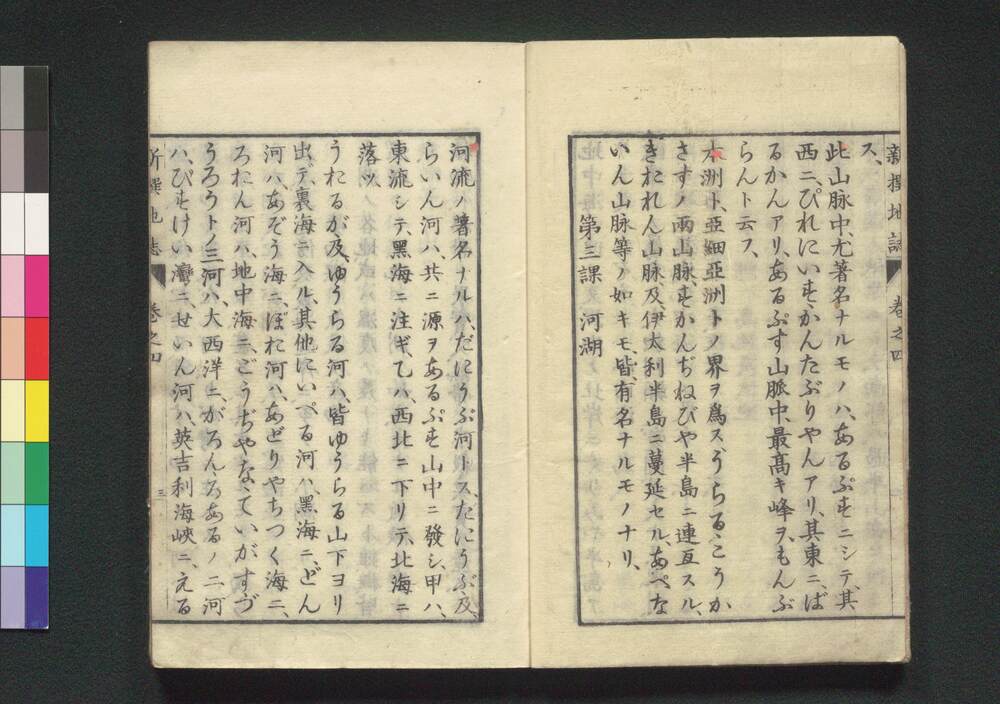 新撰地誌 卷之四
ス、
此山脈中、尤著名ナルモノハ、あるぷすニシテ、其
西ニ、ぴれにいす、かんたぶりやんアリ、其東ニ、ば
るかんアリ、あるぷす山脈中、最高キ峰ヲ、もんぶ
らんト云フ、
本洲ト、亞細亞洲トノ界ヲ爲スうらる、こうか
さすノ兩山脈、すかんぢねびや半島ニ連亙スル、
きおれん山脈、及、伊太利半島ニ蔓延セル、あぺな
いん山脈等ノ如キモ、皆、有名ナルモノナリ、
第三課 河湖
河流ノ著名ナルハ、だにうぶ河トス、だにうぶ、及、
らいん河ハ、共ニ源ヲあるぷす山中ニ發シ、甲ハ、
東流シテ、黑海ニ注ギ、乙ハ、西北ニ下リテ、北海ニ
落ツ、
うおるが、及、ゆうらる河ハ、皆ゆうらる山下ヨリ
出デ、裏海ニ入ル、其他にいぺる河ハ、黑海ニ、どん
河ハ、あぞう海ニ、ぽお河ハ、あどりやちつく海ニ、
ろおん河ハ、地中海ニ、ごうぢやな、ていがす、づ
うろうトノ三河ハ、大西洋ニ、がろん、ろあるノ二河
ハ、びすけい灣ニ、せいん河ハ、英吉利海峽ニ、える
新撰地誌 卷之四 三